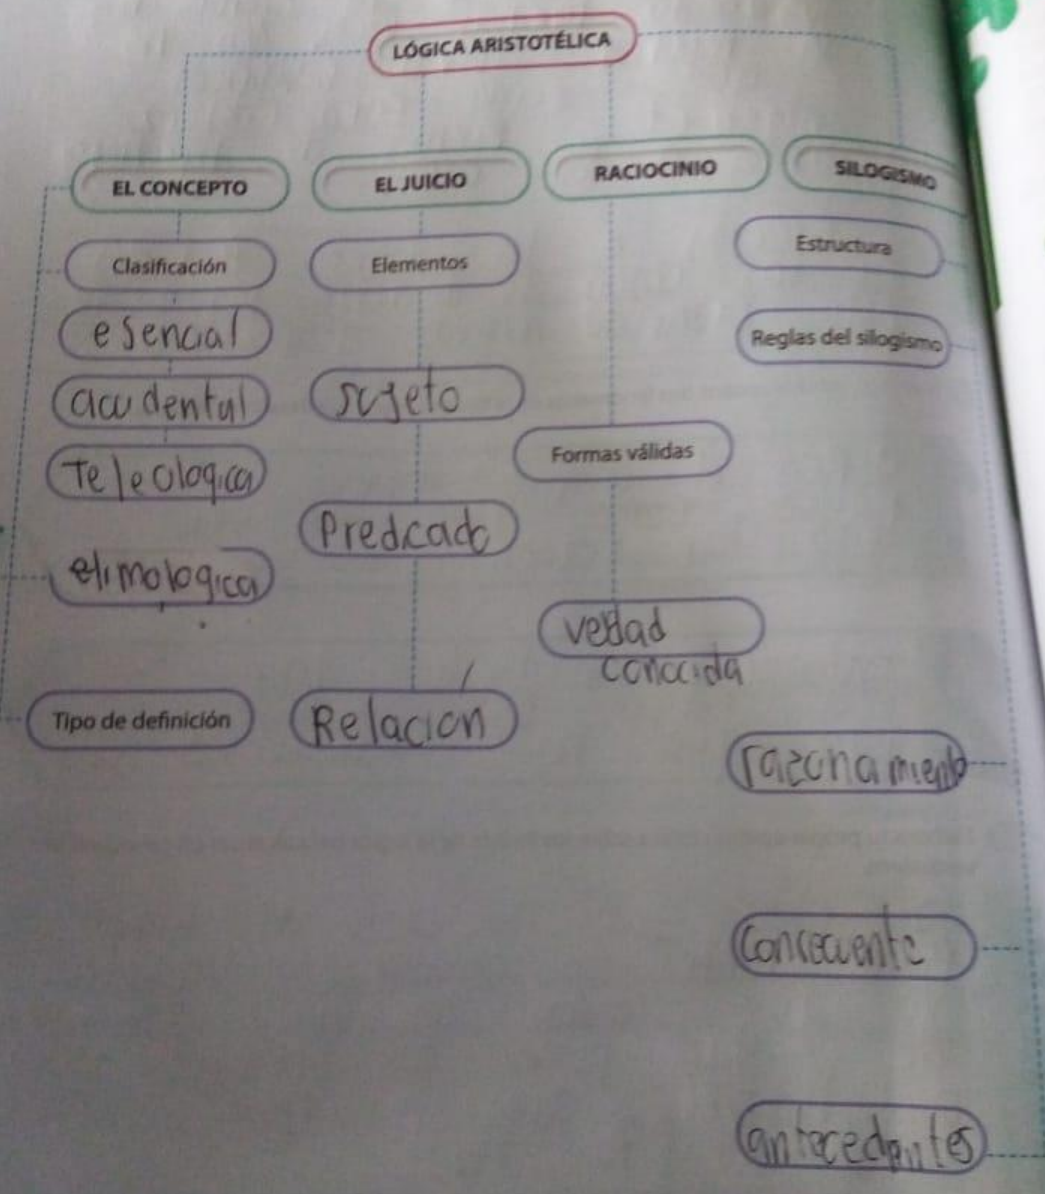 LÓGICA ARISTOTÉLICA
EL CONCEPTO
Clasificación
esencial
accidental
Teleologica
etimologica
Tipo de definición
EL JUICIO
Elementos
sujeto
Predicado
Relación
RACIOCINIO
Formas válidas
verdad
conocida
SILOGISMO
Estructura
Reglas del silogismo
razonamiento
Concecuente
antecedentes